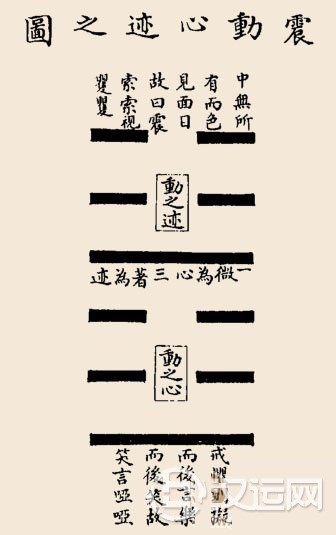 震動心迹之圖
中無所
有而色
見面目
故曰震
索索視
矍矍
動之迹
一微為心三著為迹
動之心
戒懼則擬
而後言樂
而後笑故
笑言啞啞
汉运网